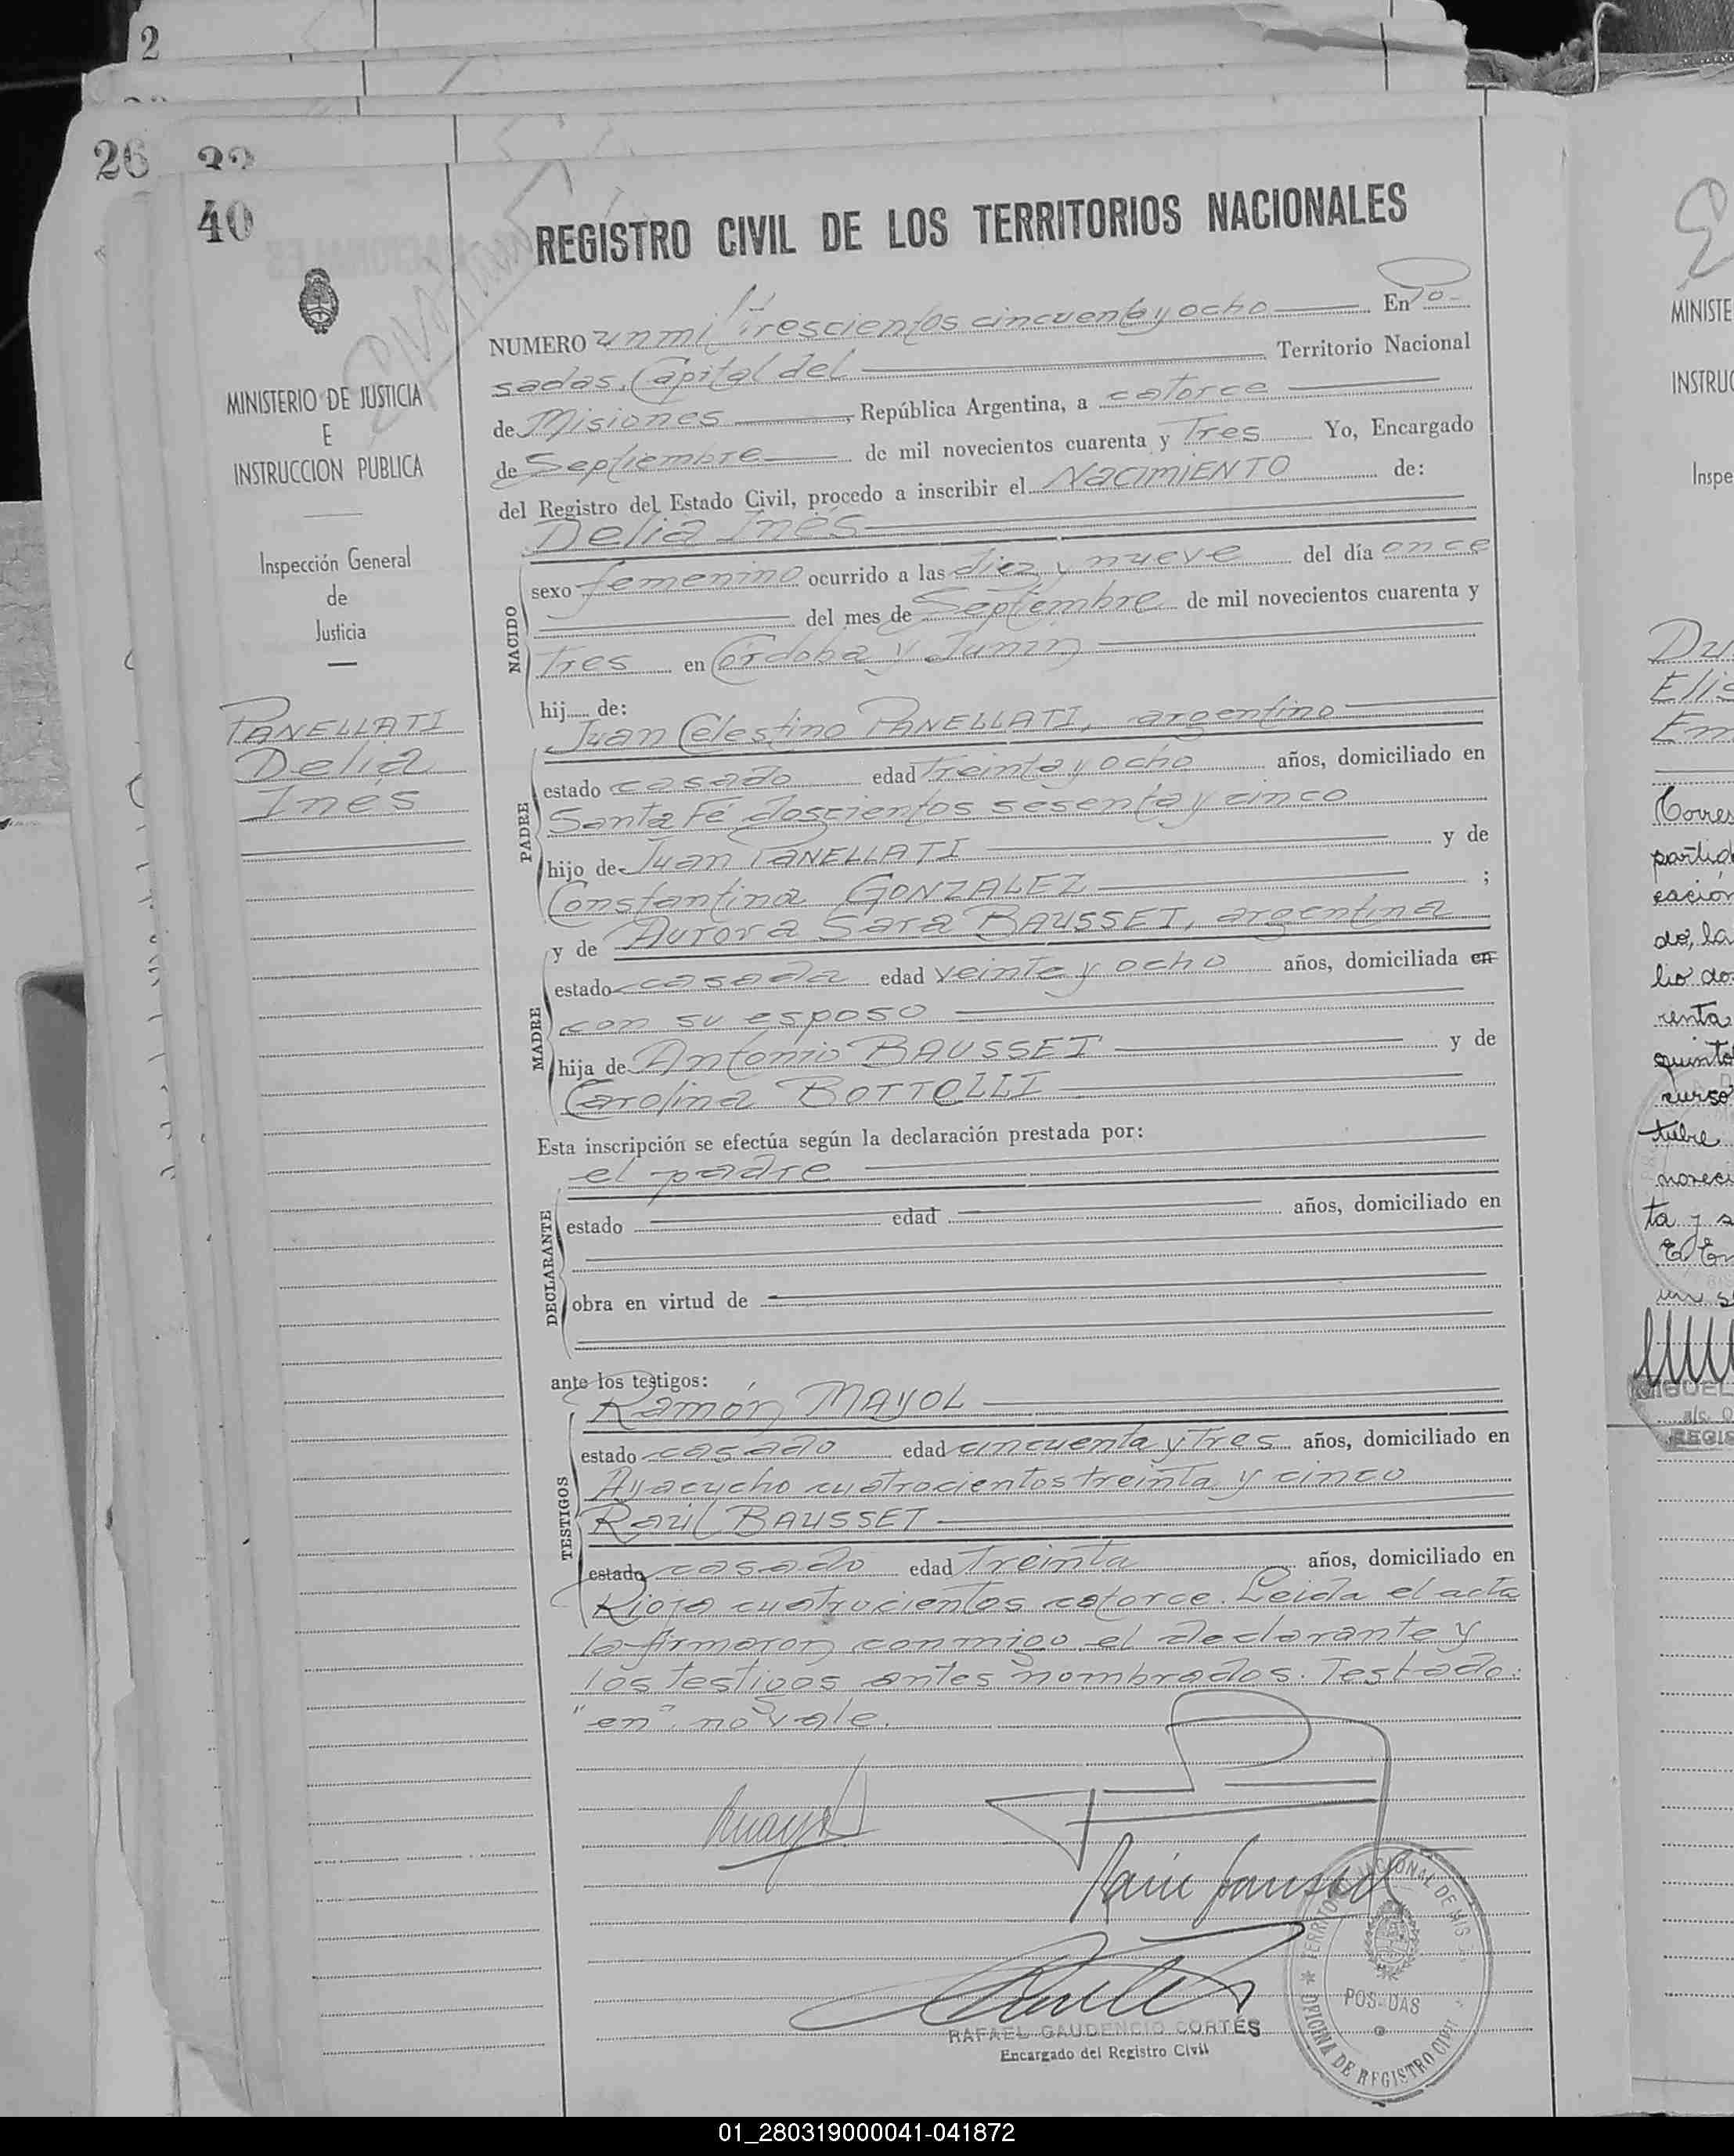 2
26
32
40
REGISTRO CIVIL DE LOS TERRITORIOS NACIONALES
MINISTERIO DE JUSTICIA
E
INSTRUCCION PUBLICA
Inspección General
de
Justicia
PANELLATI
Delia
Inés
NUMERO un mil trescientos cincuenta y ocho En Po-
sadas, Capital del Territorio Nacional
de Misiones, República Argentina, a catorce
de Septiembre de mil novecientos cuarenta y Tres Yo, Encargado
del Registro del Estado Civil, procedo a inscribir el NACIMIENTO de:
Delia Inés
NACIDO
sexo femenino ocurrido a las diez y nueve del día once
del mes de Septiembre de mil novecientos cuarenta y
Tres en Córdoba y Junín
hij de:
Juan Celestino PANELLATI, argentino
PADRE
estado casado edad Treinta y ocho años, domiciliado en
Santa Fé doscientos sesenta y cinco
hijo de Juan PANELLATI y de
Constantina GONZALEZ ;
y de Aurora Sara BAUSSET, argentina
MADRE
estado casada edad veinte y ocho años, domiciliada en
con su esposo
hija de Antonio BAUSSET y de
Carolina BOTTOLLI
Esta inscripción se efectúa según la declaración prestada por:
el padre
DECLARANTE
estado edad años, domiciliado en
obra en virtud de
ante los testigos:
Ramón MAYOL
TESTIGOS
estado casado edad cincuenta y Tres años, domiciliado en
Ayacucho cuatrocientos treinta y cinco
Raúl BAUSSET
estado casado edad Treinta años, domiciliado en
Rioja cuatrocientos catorce. Leida el acta
la firmaron conmigo el declarante y
los testigos antes nombrados. Testado:
"en" no vale.
RAFAEL GAUDENCIO CORTÉS
Encargado del Registro Civil
TERRITORIO NACIONAL DE MIS
POSADAS
OFICINA DE REGISTRO CIVIL
MINISTE
INSTRUC
Inspe
Elis
Corres
partid
cación
do, la
lio do
renta
quinto
curso
tubre
noveci
ta y s
MIGUEL
REGIS
01_280319000041-041872